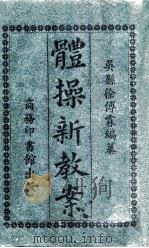 吳縣徐傅霖編纂
體操新教案
商務印書館出